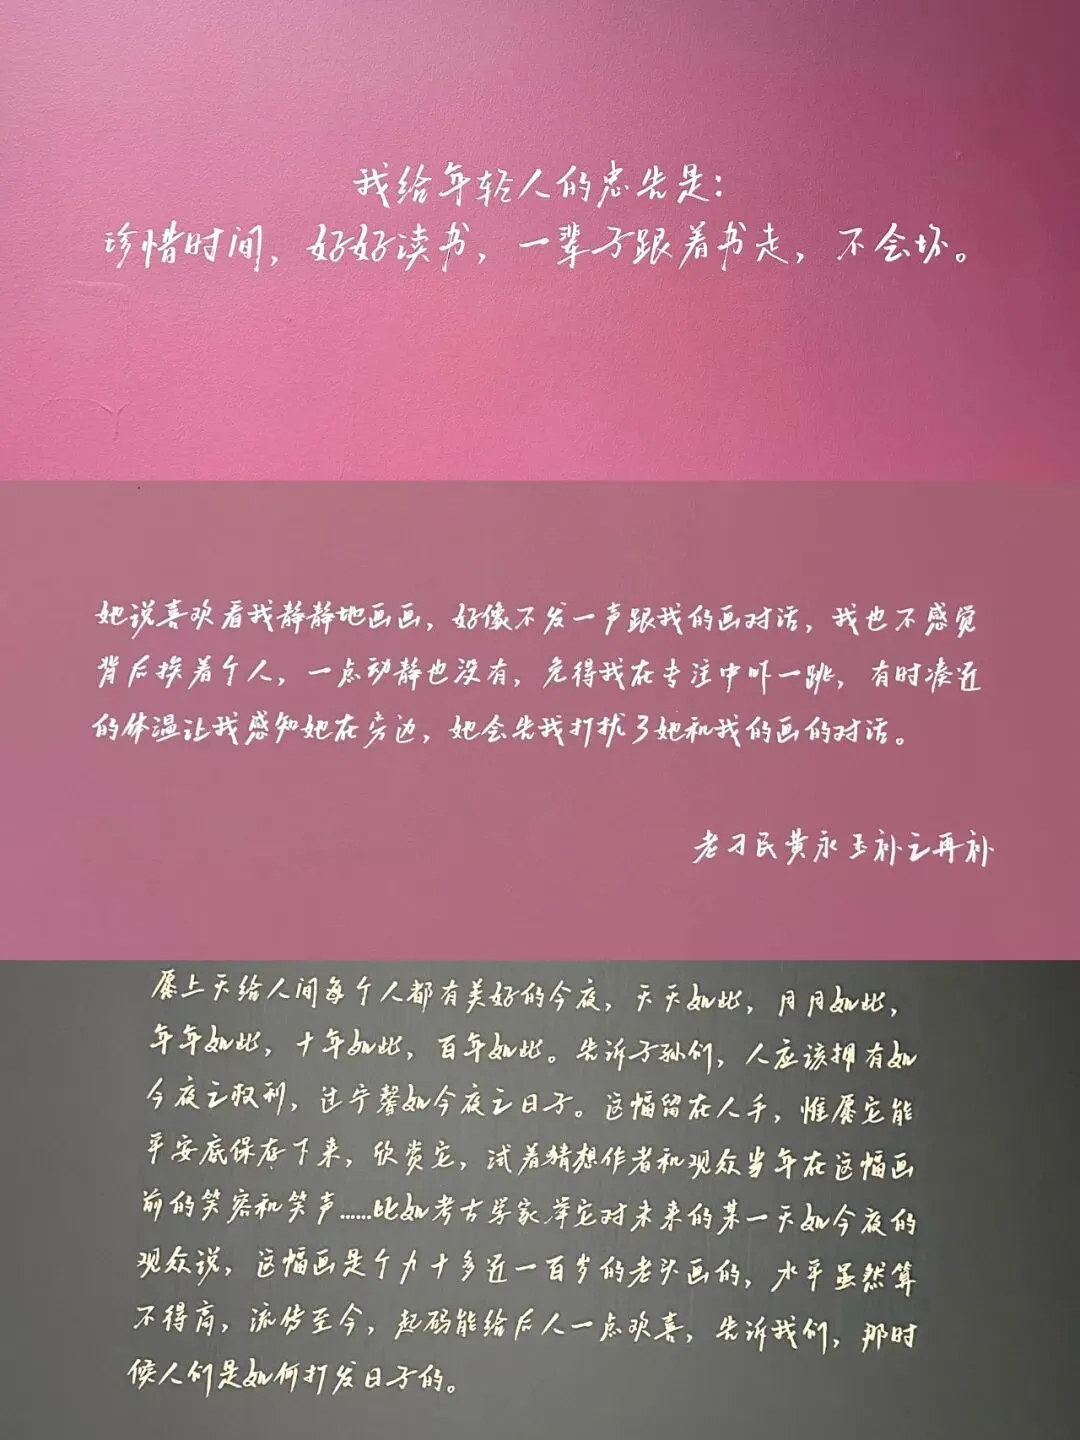 我给年轻人的忠告是：
珍惜时间，好好读书，一辈子跟着书走，不会坏。
她说喜欢看我静静地画画，好像不发一声跟我的画对话，我也不感觉
背后挨着个人，一点动静也没有，免得我在专注中吓一跳，有时凑近
的体温让我感知她在旁边，她会告我打扰了她和我的画的对话。
老刁民黄永玉补之再补
愿上天给人间每个人都有美好的今夜，天天如此，月月如此，
年年如此，十年如此，百年如此。告诉子孙们，人应该拥有如
今夜之权利，过宁馨如今夜之日子。这幅留在人手，惟愿它能
平安底保存下来，欣赏它，试着猜想作者和观众当年在这幅画
前的笑容和笑声……比如考古学家举它对未来的某一天如今夜的
观众说，这幅画是个九十多近一百岁的老头画的，水平虽然算
不得高，流传至今，起码能给后人一点欢喜，告诉我们，那时
候人们是如何打发日子的。